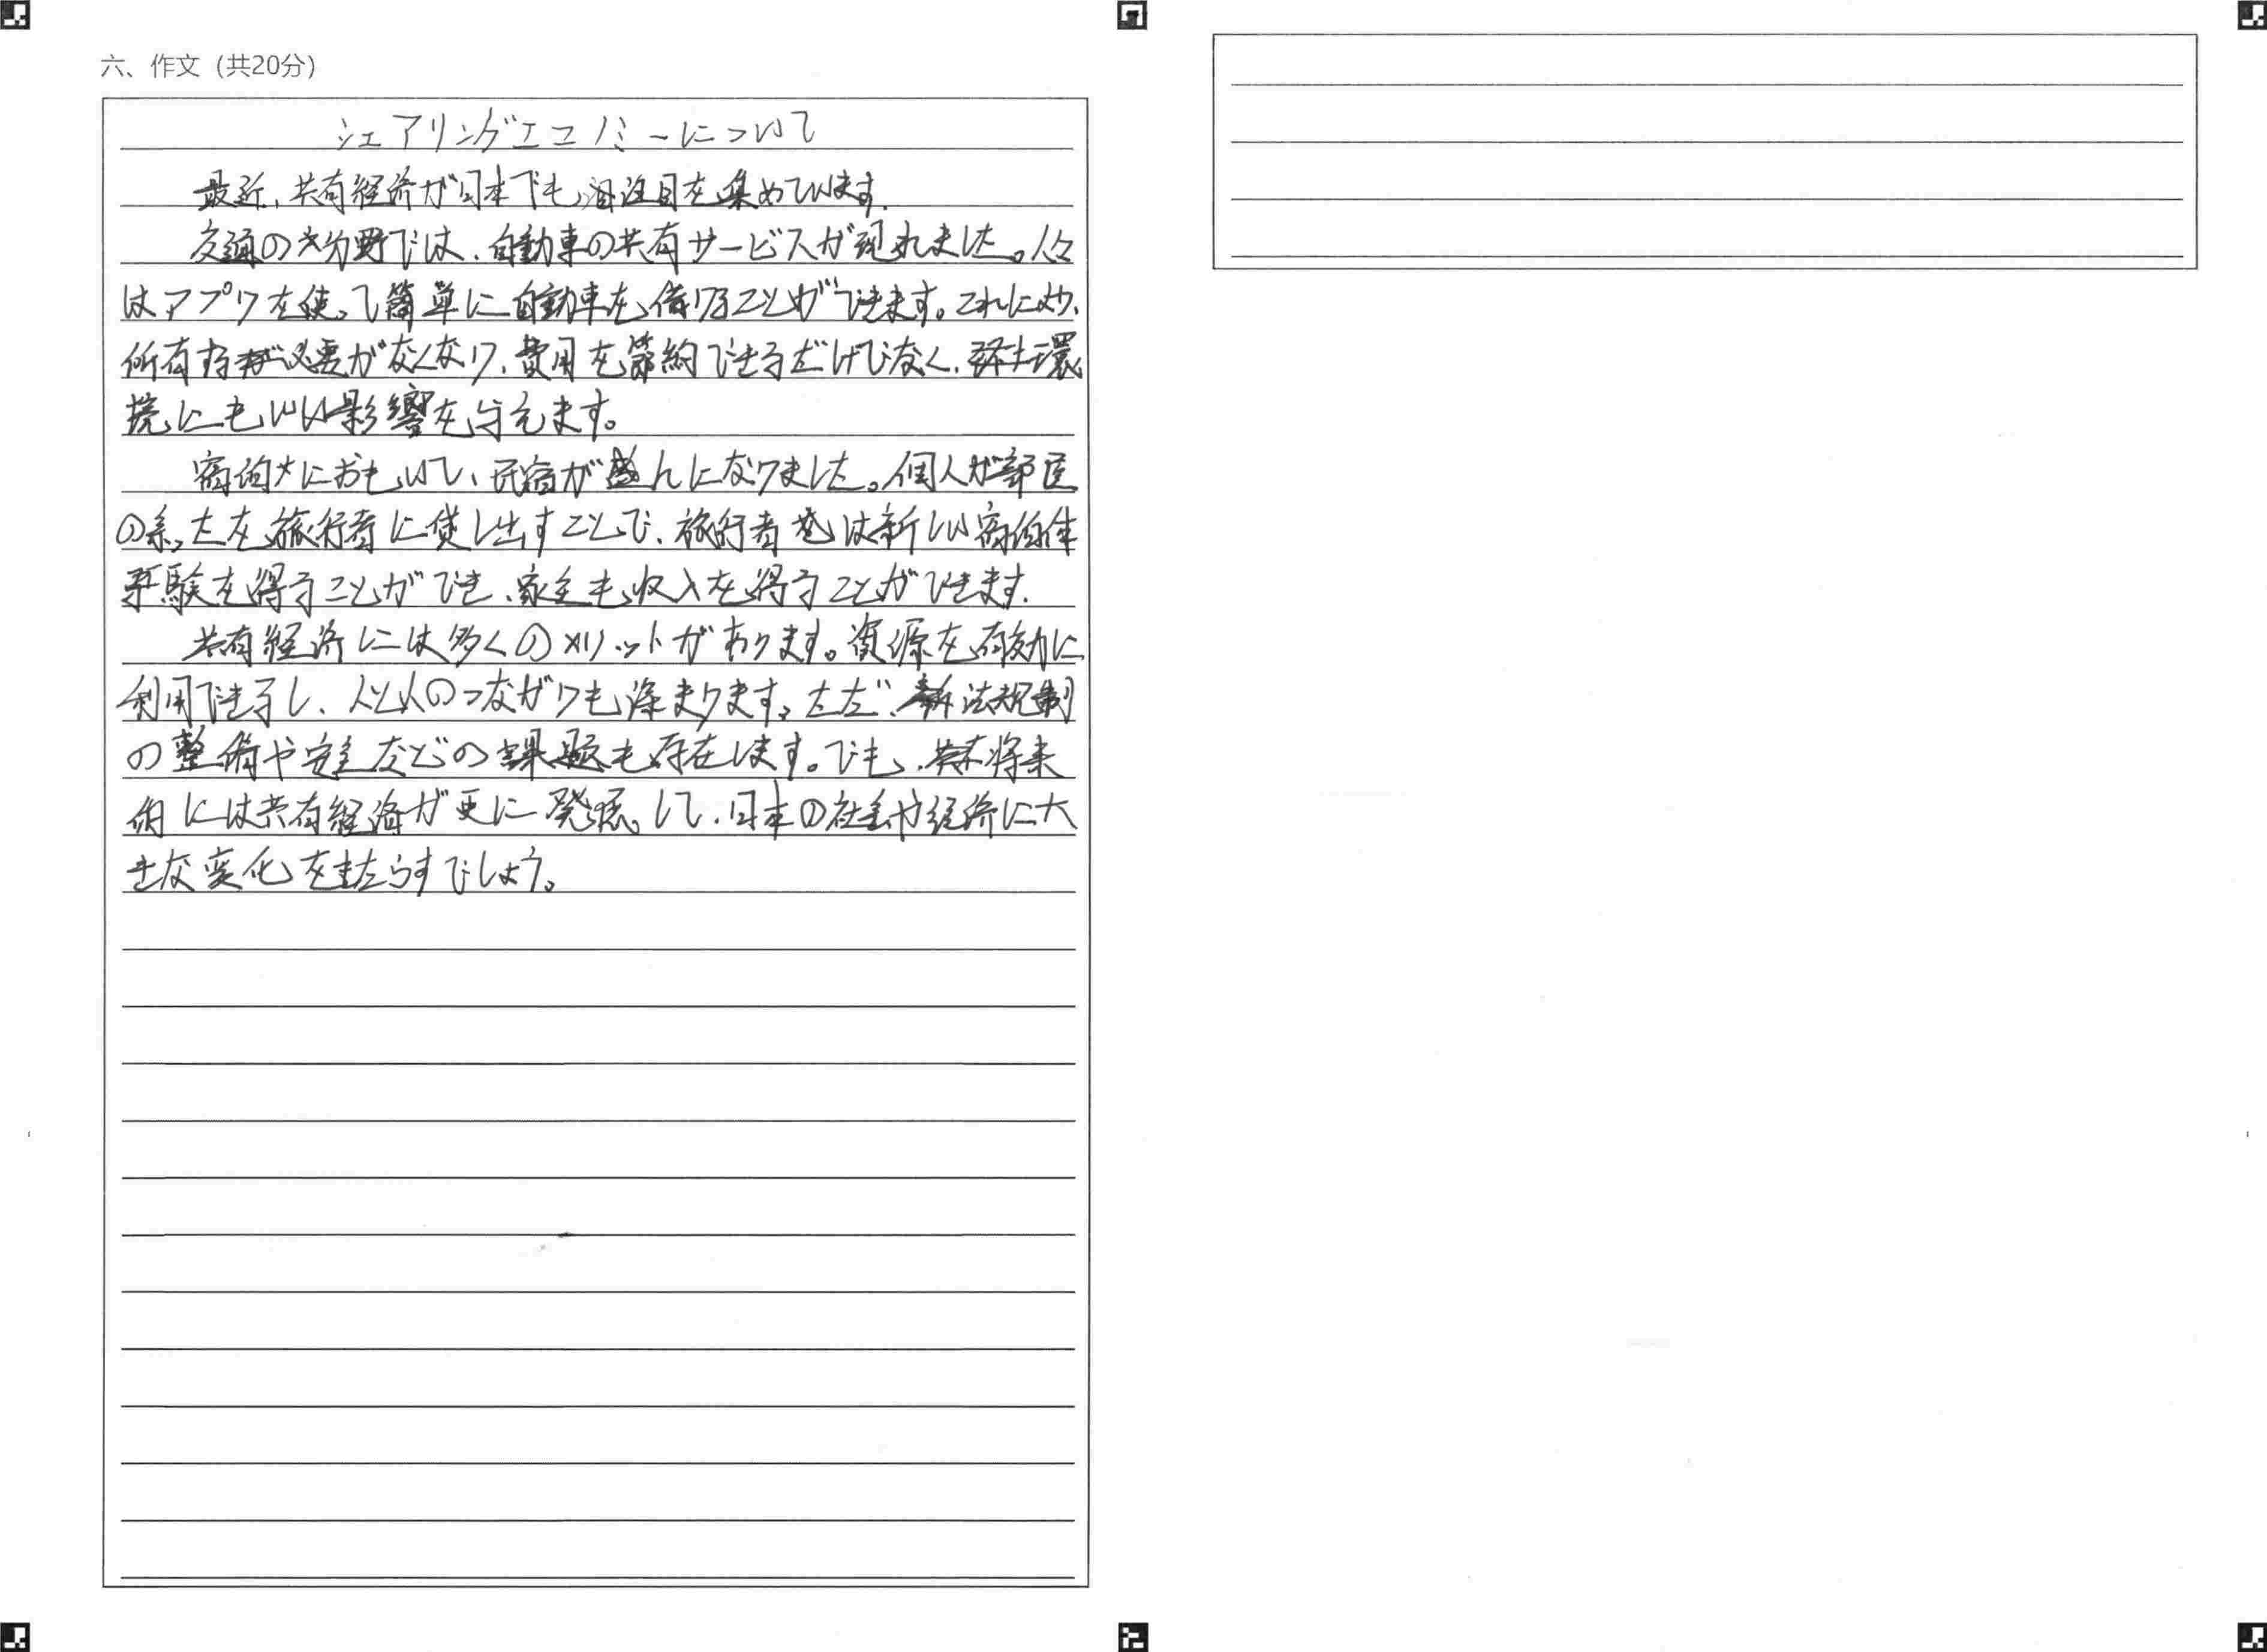 六、作文（共20分）
シェアリングエコノミーについて
最近、共有経済が日本でも注目を集めています。
交通の分野では、自動車の共有サービスが現れました。人々
はアプリを使って簡単に自動車を借りることができます。これにより、
所有する必要がなくなり、費用を節約できるだけでなく、環
境にもいい影響を与えます。
宿泊において、民宿が盛んになりました。個人が部屋
を旅行者に貸し出すことで、旅行者は新しい宿泊体
験を得ることができ、家主も収入を得ることができます。
共有経済には多くのメリットがあります。資源を有効に
利用できるし、人と人のつながりも深まります。ただ、法規制
の整備や安全などの課題も存在します。でも、将来
的には共有経済が更に発展して、日本の社会や経済に大
きな変化をもたらすでしょう。